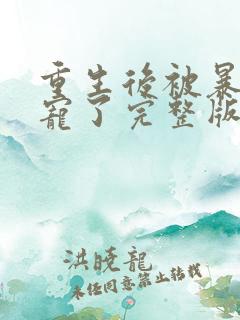 重生後被暴
寵了完整版
洪曉龍
未任同意禁止转载